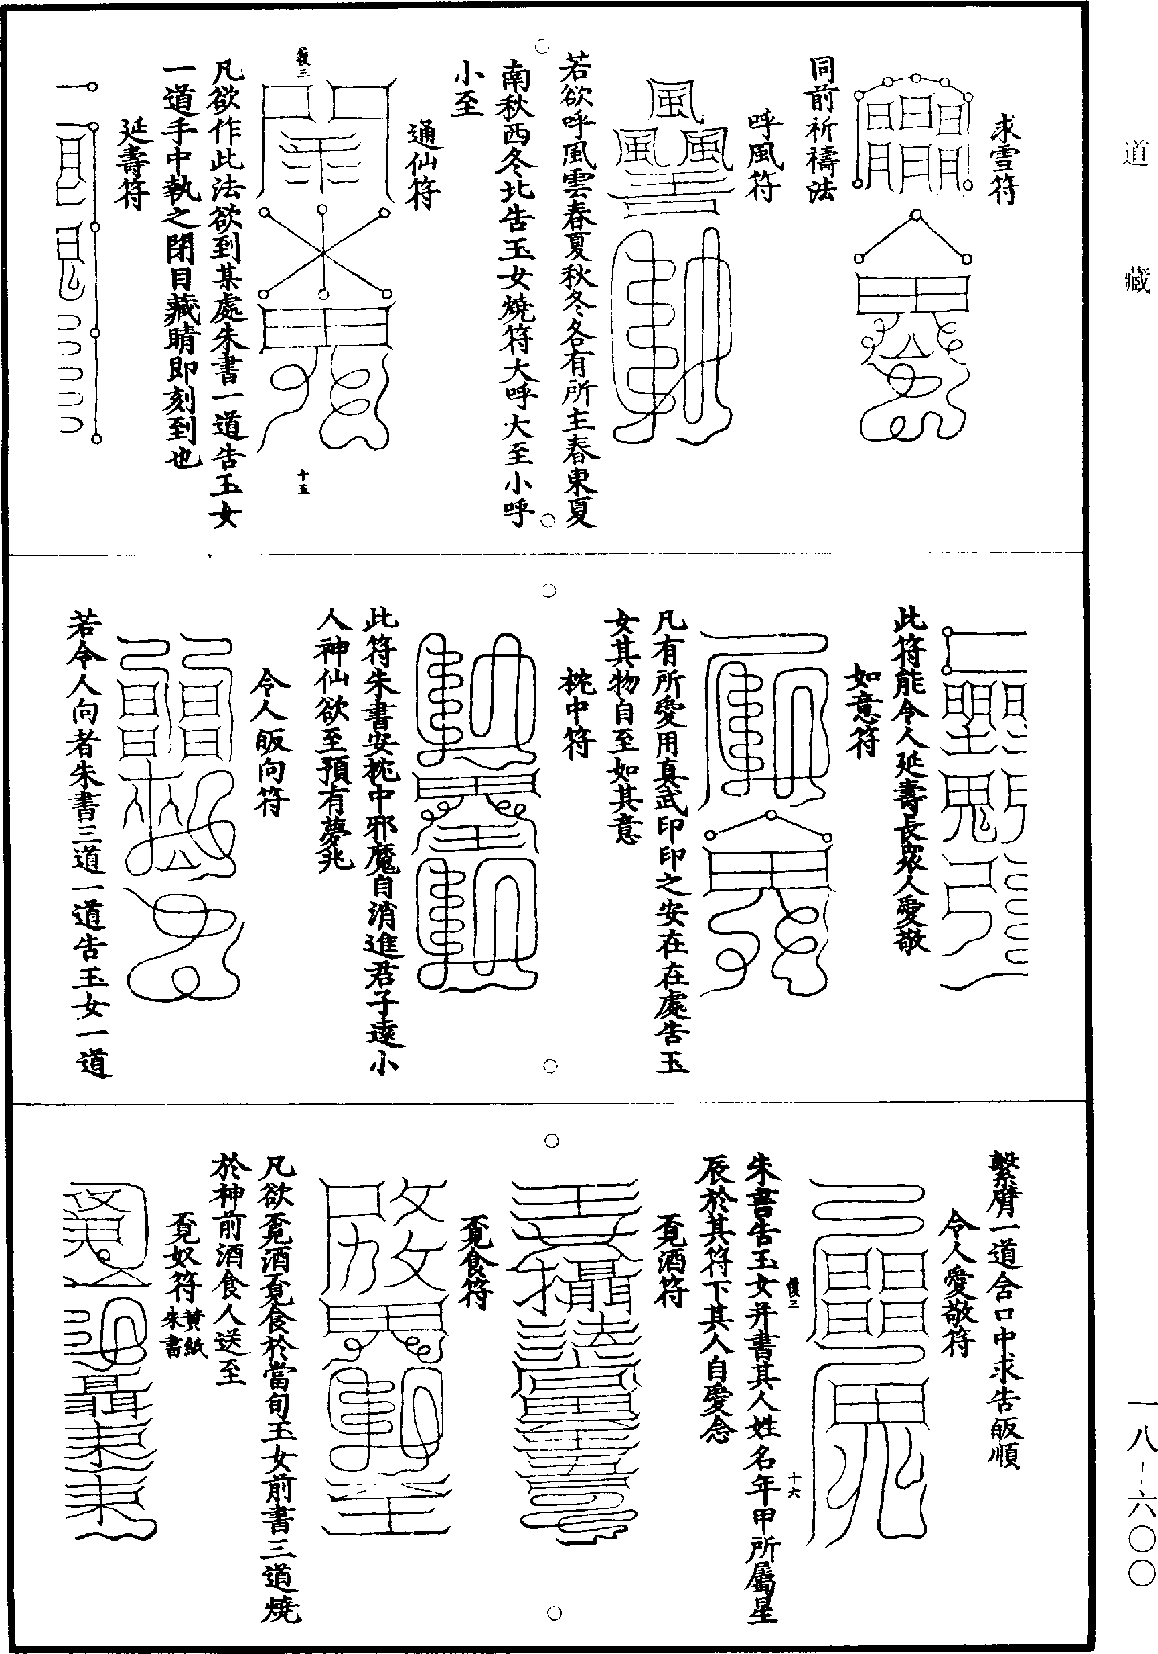 道藏
一八-六〇〇
求雪符
同前祈禱法
呼風符
若欲呼風雲春夏秋冬各有所主春東夏
南秋西冬北告玉女燒符大呼大至小呼
小至
通仙符
復三
十五
凡欲作此法欲到某處朱書一道告玉女
一道手中執之閉目藏睛即刻到也
延壽符
此符能令人延壽長衆人愛敬
如意符
凡有所愛用真武印印之安在在處告玉
女其物自至如其意
枕中符
此符朱書安枕中邪魔自消進君子遠小
人神仙欲至預有夢兆
令人皈向符
若令人向者朱書三道一道告玉女一道
繫臂一道含口中求告皈順
令人愛敬符
復三
十六
朱書告玉女并書其人姓名年甲所屬星
辰於其符下其人自愛念
覔酒符
覔食符
凡欲覔酒覔食於當旬玉女前書三道燒
於神前酒食人送至
覔奴符黃紙朱書